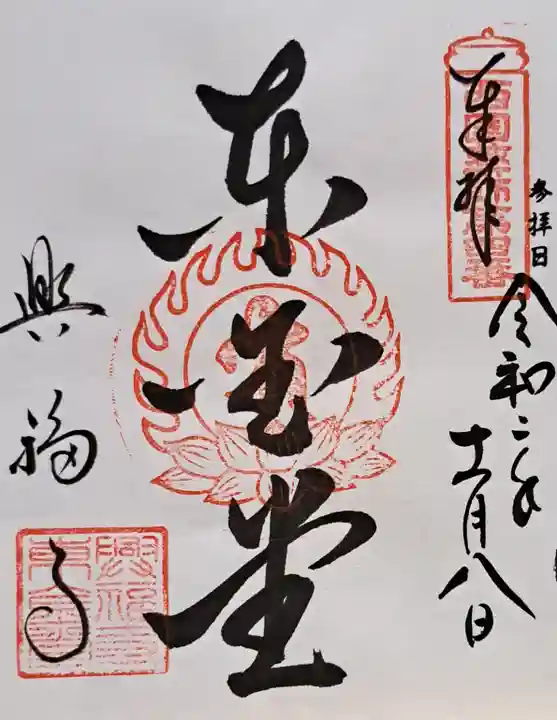 奉拝
参拝日
令和二年
十一月八日
東金堂
興福寺